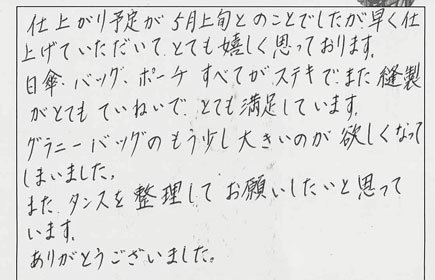 仕上がり予定が5月上旬とのことでしたが早く仕
上げていただいて、とても嬉しく思っております。
日傘・バッグ、ポーチ すべてがステキでまた縫製
がとても ていねいで、とても満足しています。
グラニーバッグのもう少し大きいのが欲しくなって
しまいました。
また、タンスを整理して お願いしたいと思って
います。
ありがとうございました。